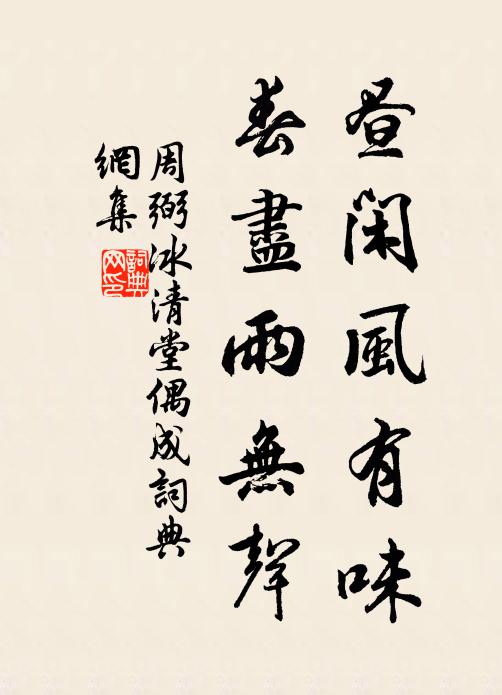 昼閑風有味
春盡雨無聲
周弼冰清堂偶成詞典
網集
詞典
网印